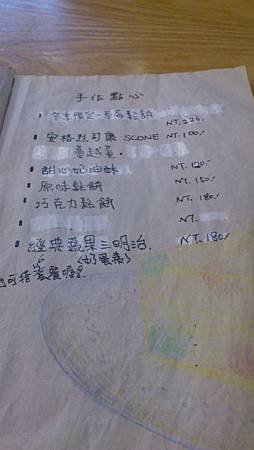 手作點心
冬季限定-草莓鬆餅 NT.220.
安格烈司康 SCONE NT.100.
蔓越莓.
甜心奶油酥 NT.120.
原味鬆餅 NT.150.
巧克力鬆餅 NT.180.
NT.
經典蔬果三明治. NT.180.
(奶蛋素)
可搭蛋喔!